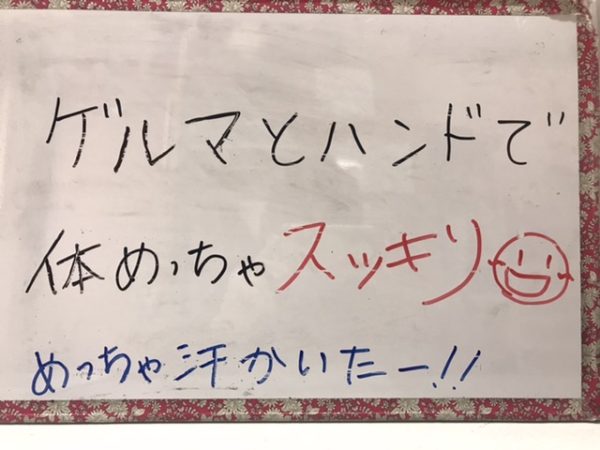 ゲルマとハンドで
体めっちゃスッキリ
めっちゃ汗かいたー!!